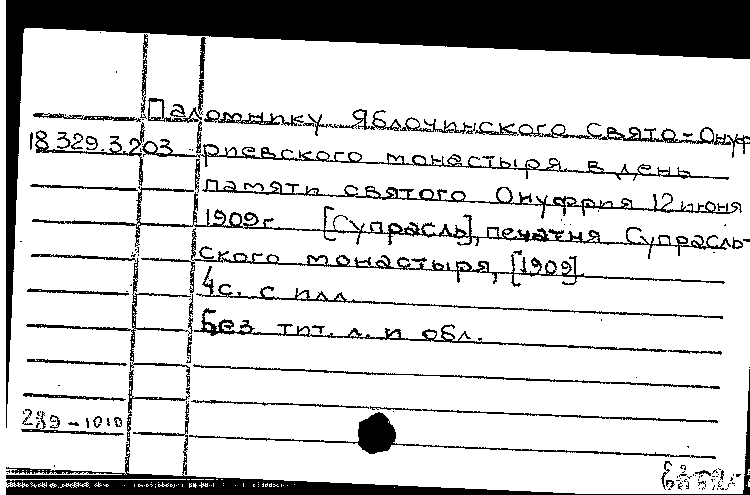 Паломнику Яблочинского Свято-Онуф
18.329.3.203 риевского монастыря в день
памяти святого Онуфрия 12 июня
1909г [Супрасль], печатня Супрасль-
ского монастыря, [1909].
4с. с илл.
Без тит. л. и обл.
289-1010